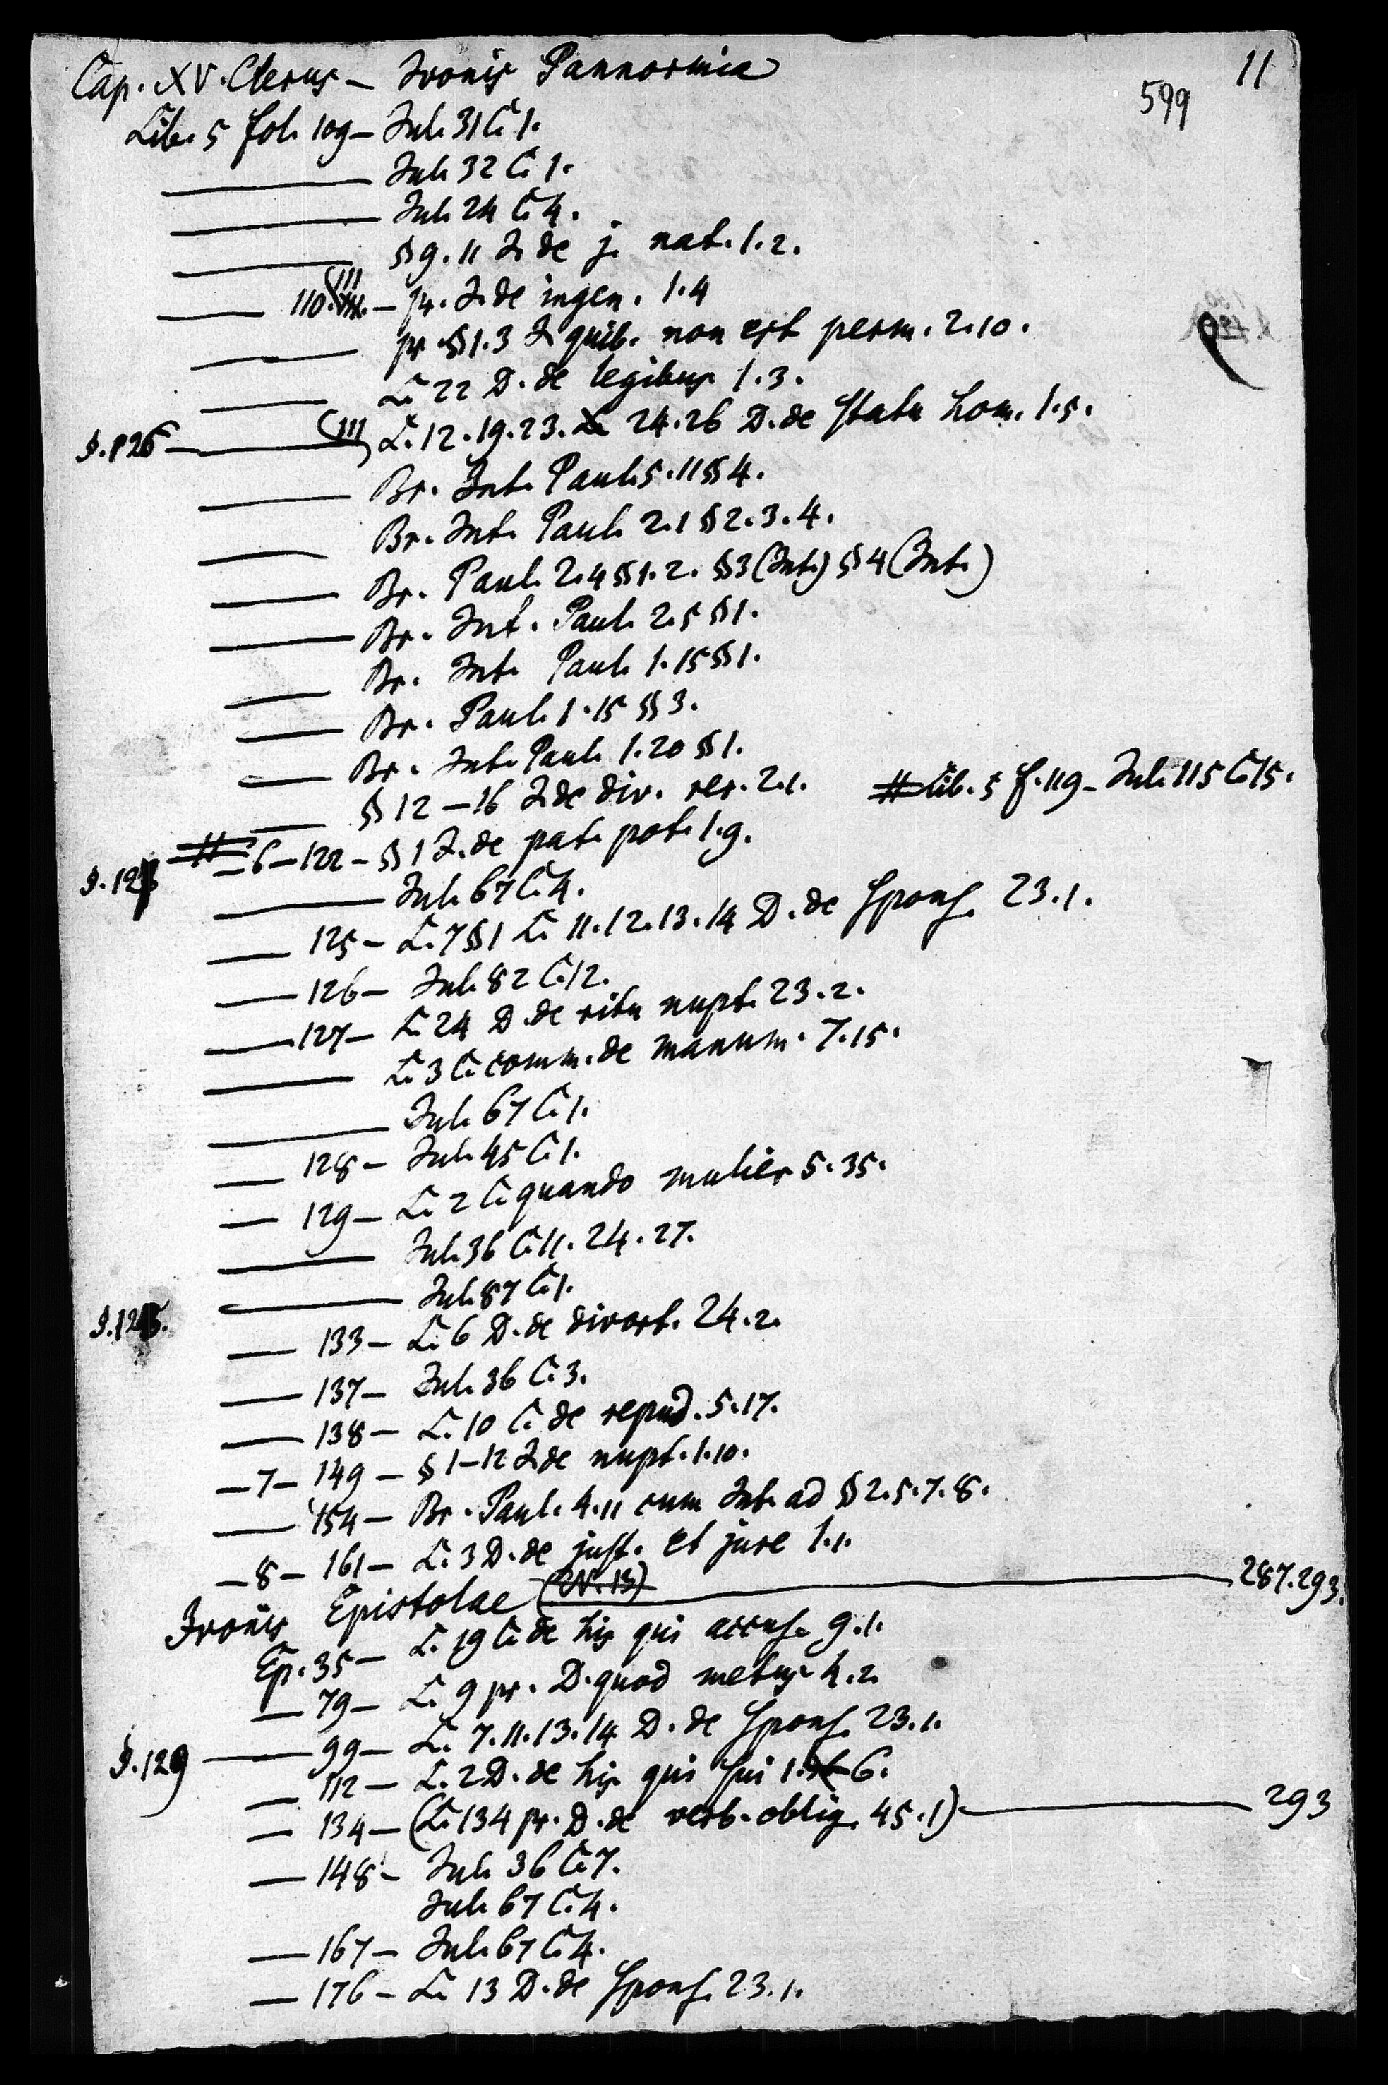 11
599
Cap. XV. Clerus — Ivonis Pannormia
Lib. 5 fol. 109 — Jul. 31 C. 1.
— Jul. 32 C. 1.
— Jul. 24 C. 4.
— § 9. 11 I. de j. nat. 1. 2.
— 110. 111 — pr. I. de ingen. 1. 4
— pr. § 1. 3 I. quib. non est perm. 2. 10.
— L. 22 D. de legibus 1. 3.
S. 126 — (111) L. 12. 19. 23. 24. 26 D. de statu hom. 1. 5.
— Br. Int. Paul. 5. 11 § 4.
— Br. Int. Paul. 2. 1 § 2. 3. 4.
— Br. Paul. 2. 4 § 1. 2. § 3 (Int.) § 4 (Int.)
— Br. Int. Paul. 2. 5 § 1.
— Br. Int. Paul. 1. 15 § 1.
— Br. Paul. 1. 15 § 3.
— Br. Int. Paul. 1. 20 § 1.
— § 12 — 16 I. de div. rer. 2. 1. # Lib. 5 f. 119 — Jul. 115 C. 15.
# — 6 — 122 — § 1 I. de pat. pot. 1. 9.
— Jul. 67 C. 4.
— 125 — L. 7 § 1 L. 11. 12. 13. 14 D. de spons. 23. 1.
— 126 — Jul. 82 C. 12.
— 127 — L. 24 D. de ritu nupt. 23. 2.
— L. 3 C. comm. de manum. 7. 15.
— Jul. 67 C. 1.
— 128 — Jul. 45 C. 1.
— 129 — L. 2 C. quando mulier 5. 35.
— Jul. 36 C. 11. 24. 27.
— Jul. 87 C. 1.
— 133 — L. 6 D. de divort. 24. 2.
— 137 — Jul. 36 C. 3.
— 138 — L. 10 C. de repud. 5. 17.
— 7 — 149 — § 1 — 12 I. de nupt. 1. 10.
— 154 — Br. Paul. 4. 11 cum Int. ad § 2. 5. 7. 8.
— 8 — 161 — L. 3 D. de just. et jure 1. 1.
Ivonis Epistolae (N. 13) — 287. 293.
Ep. 35 — L. 19 C. de his qui accus. 9. 1.
— 79 — L. 9 pr. D. quod metus 4. 2.
S. 129 — 99 — L. 7. 11. 13. 14 D. de spons. 23. 1.
— 112 — L. 2 D. de his qui sui 1. 6.
— 134 — (L. 134 pr. D. de verb. oblig. 45. 1) — 293
— 148 — Jul. 36 C. 7.
Jul. 67 C. 4.
— 167 — Jul. 67 C. 4.
— 176 — L. 13 D. de spons. 23. 1.